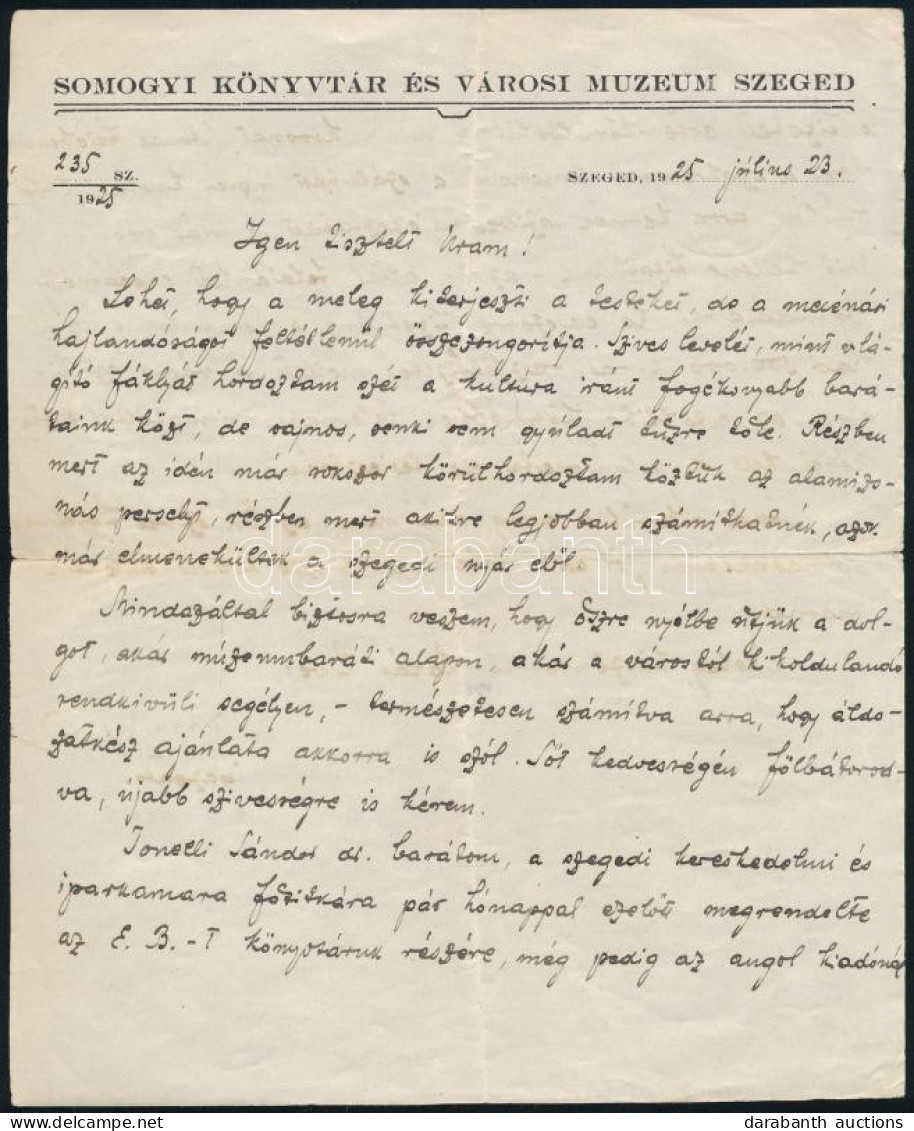 SOMOGYI KÖNYVTÁR ÉS VÁROSI MUZEUM SZEGED
235 SZ.
1925
SZEGED, 1925 július 23.
Igen tisztelt Uram!
Lehet, hogy a meleg kiterjeszti a testeket, de a mecénási
hajlandóságot feltétlenül összezsugorítja. Szives levelét, mint vilá-
gító fáklyát hordoztam szét a kultúra iránt fogékonyabb bará-
taink közt, de sajnos, senki sem gyúladt tűzre tőle. Részben
mert az idén már sokszor körülhordoztam köztük az alamizs-
nás perselyt, részben mert akikre legjobban számíthatnék, azok
már elmenekültek a szegedi nyár elől.
Mindazáltal biztosra veszem, hogy őszre nyélbe ütjük a dol-
got, akár múzeumbaráti alapon, akár a várostól kikoldulandó
rendkivüli segélyen, - természetesen számítva arra, hogy áldo-
zatkész ajánlata akkorra is szól. Sőt kedvességén fölbátorod-
va, újabb szivességre is kérem.
Tonelli Sándor dr. barátom, a szegedi kereskedelmi és
iparkamara főtitkára pár hónappal ezelőtt megrendelte
az E. B.-t könyvtáruk részére, még pedig az angol kiadónál
darabanth
darabanth auctions